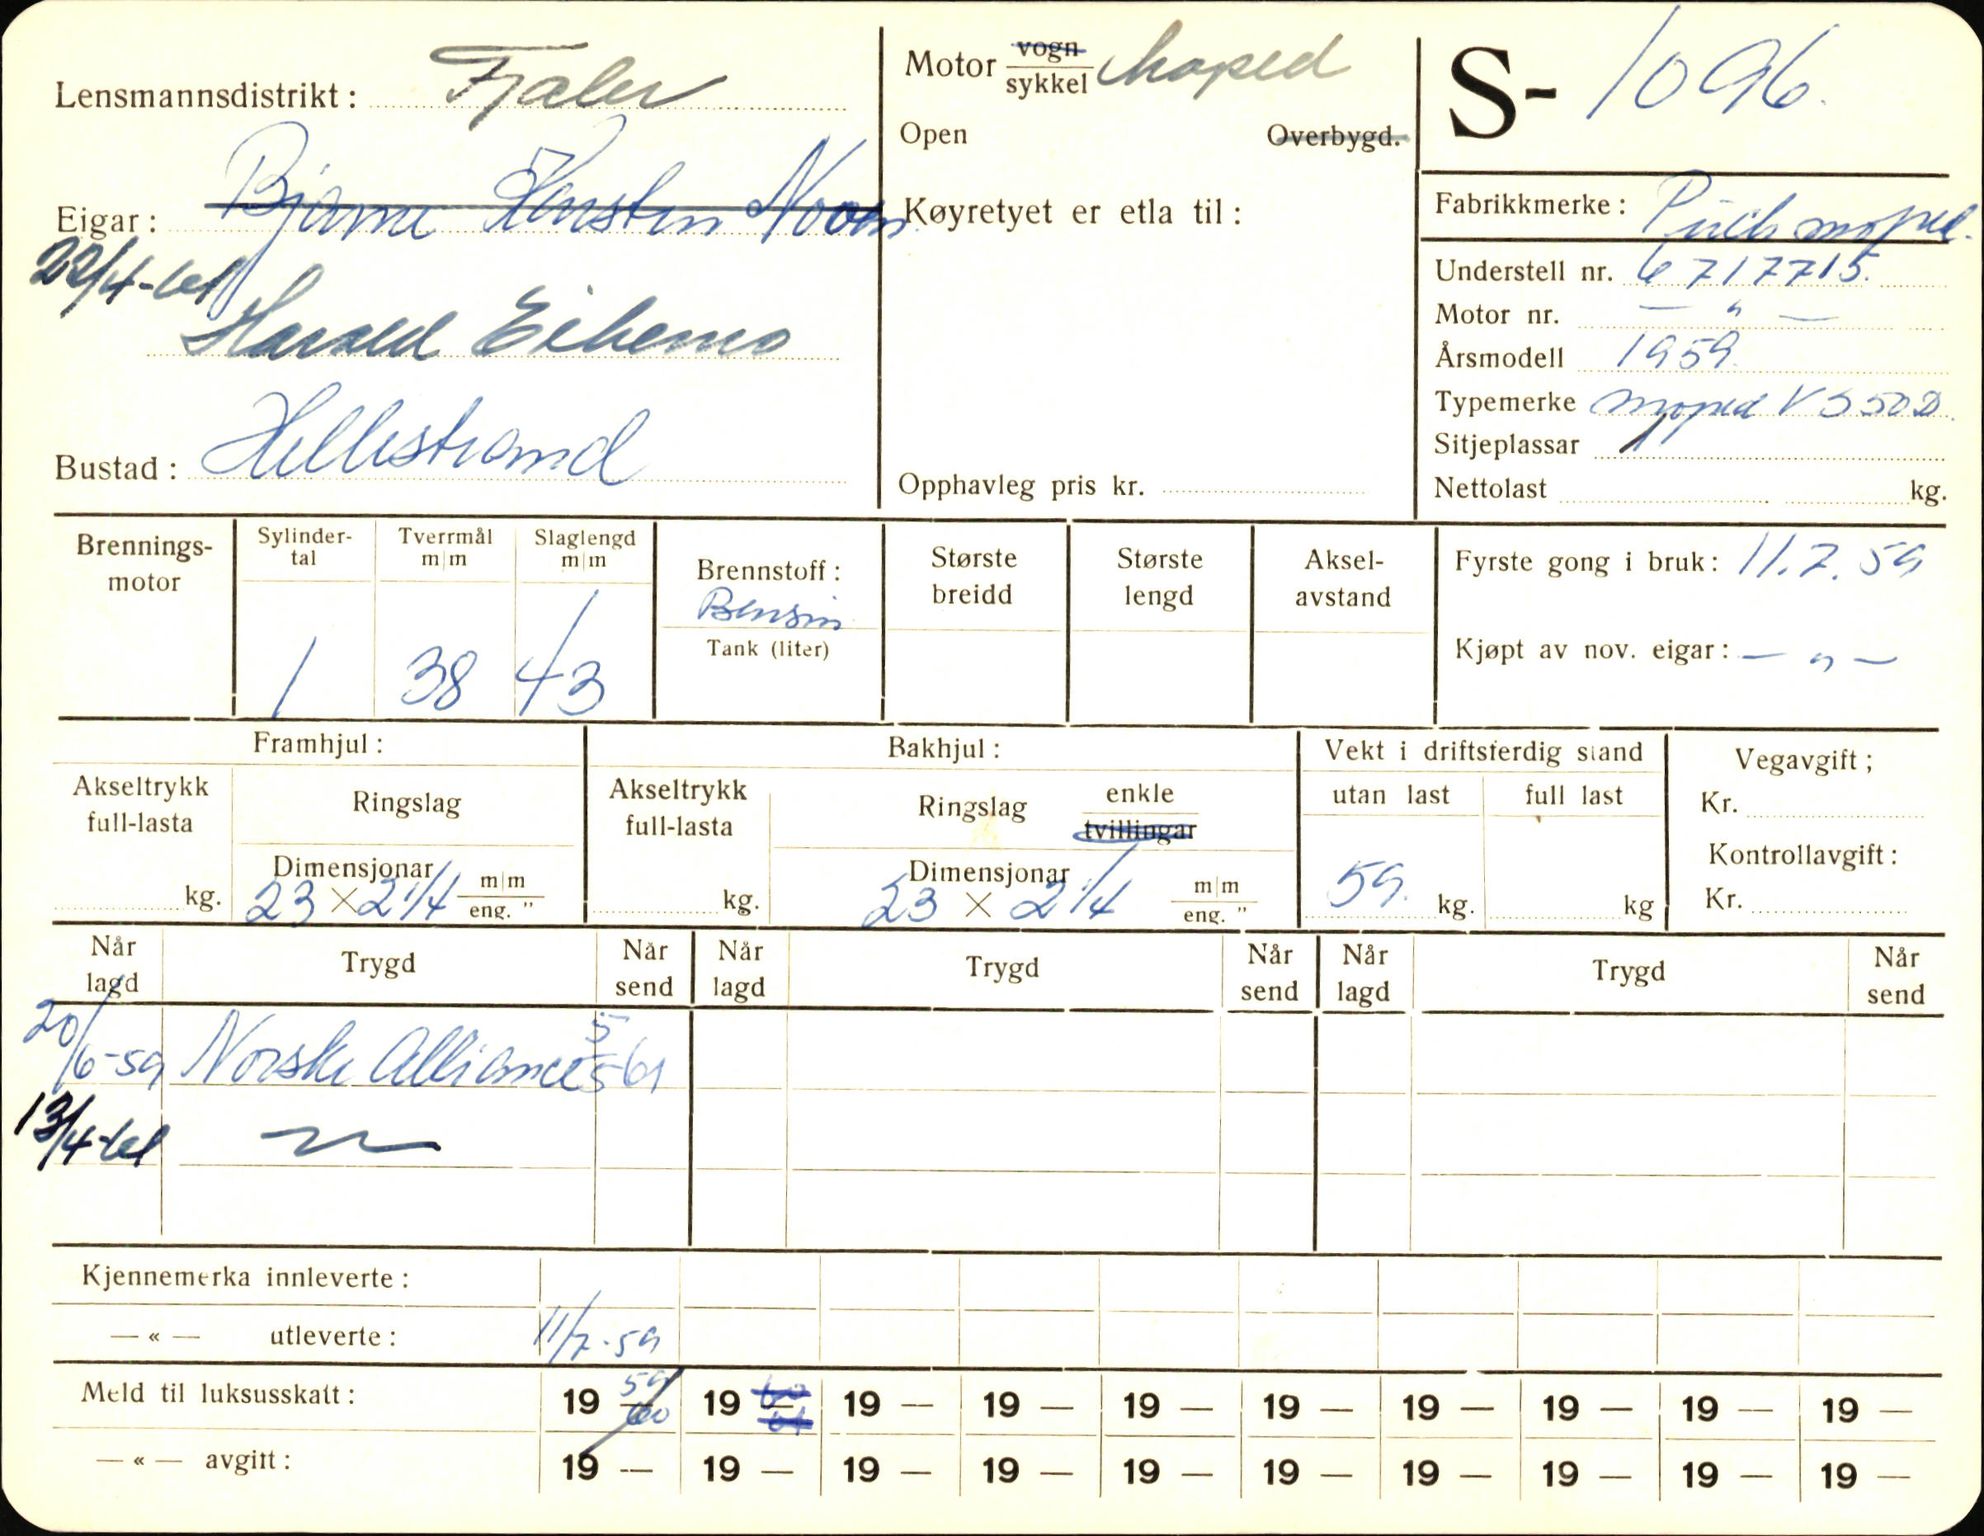 Lensmannsdistrikt: Fjaler
Motor vogn/sykkel Moped
S- 1096.
Open Overbygd.
Eigar: Bjarne Karsten Noven
Køyretyet er etla til:
Fabrikkmerke: Puch moped.
22/4-61
Harald Eikemo
Understell nr. 6717715.
Motor nr. — " —
Årsmodell 1959.
Typemerke Moped VS50D.
Sitjeplassar 1
Bustad: Hellestrand
Opphavleg pris kr.
Nettolast kg.
Brennings-motor
Sylinder-tal 1
Tverrmål m|m 38
Slaglengd m|m 43
Brennstoff: Bensin
Tank (liter)
Største breidd
Største lengd
Aksel-avstand
Fyrste gong i bruk: 11.7.59
Kjøpt av nov. eigar: — " —
Framhjul:
Akseltrykk full-lasta kg.
Ringslag
Dimensjonar 23 × 2 1/4 m|m eng. "
Bakhjul:
Akseltrykk full-lasta kg.
Ringslag enkle tvillingar
Dimensjonar 23 × 2 1/4 m|m eng. "
Vekt i driftsferdig stand
utan last 59. kg.
full last kg
Vegavgift;
Kr.
Kontrollavgift:
Kr.
Når lagd Trygd Når send Når lagd Trygd Når send Når lagd Trygd Når send
20/6-59 Norske Alliance 5/5-61
13/4-61 — " —
Kjennemerka innleverte:
— « — utleverte: 11/7-59
Meld til luksusskatt: 19 59/60 19 60/61 19 — 19 — 19 — 19 — 19 — 19 — 19 — 19 —
— « — avgitt: 19 — 19 — 19 — 19 — 19 — 19 — 19 — 19 — 19 — 19 —